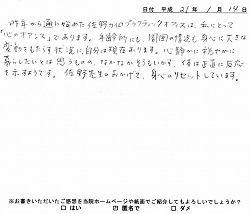 日付 平成 21 / 1 / 14
昨年から通い始めた佐野カイロプラクティックオフィスは、私にとって
「心のオアシス」であります。年齢的にも、周囲の情況も身心に大きな
変動をもたらす状況に自分は現在おります。心静かに穏やかに
暮らしたいとは思うものの、なかなかそうもいかず、体は正直に反応
を示すようです。佐野先生のおかげで、身心のリセットしています。
※お書きいただいたご感想を当院ホームページや紙面でご紹介してもよろしいでしょうか?
□ はい ☑ 匿名で □ ダメ